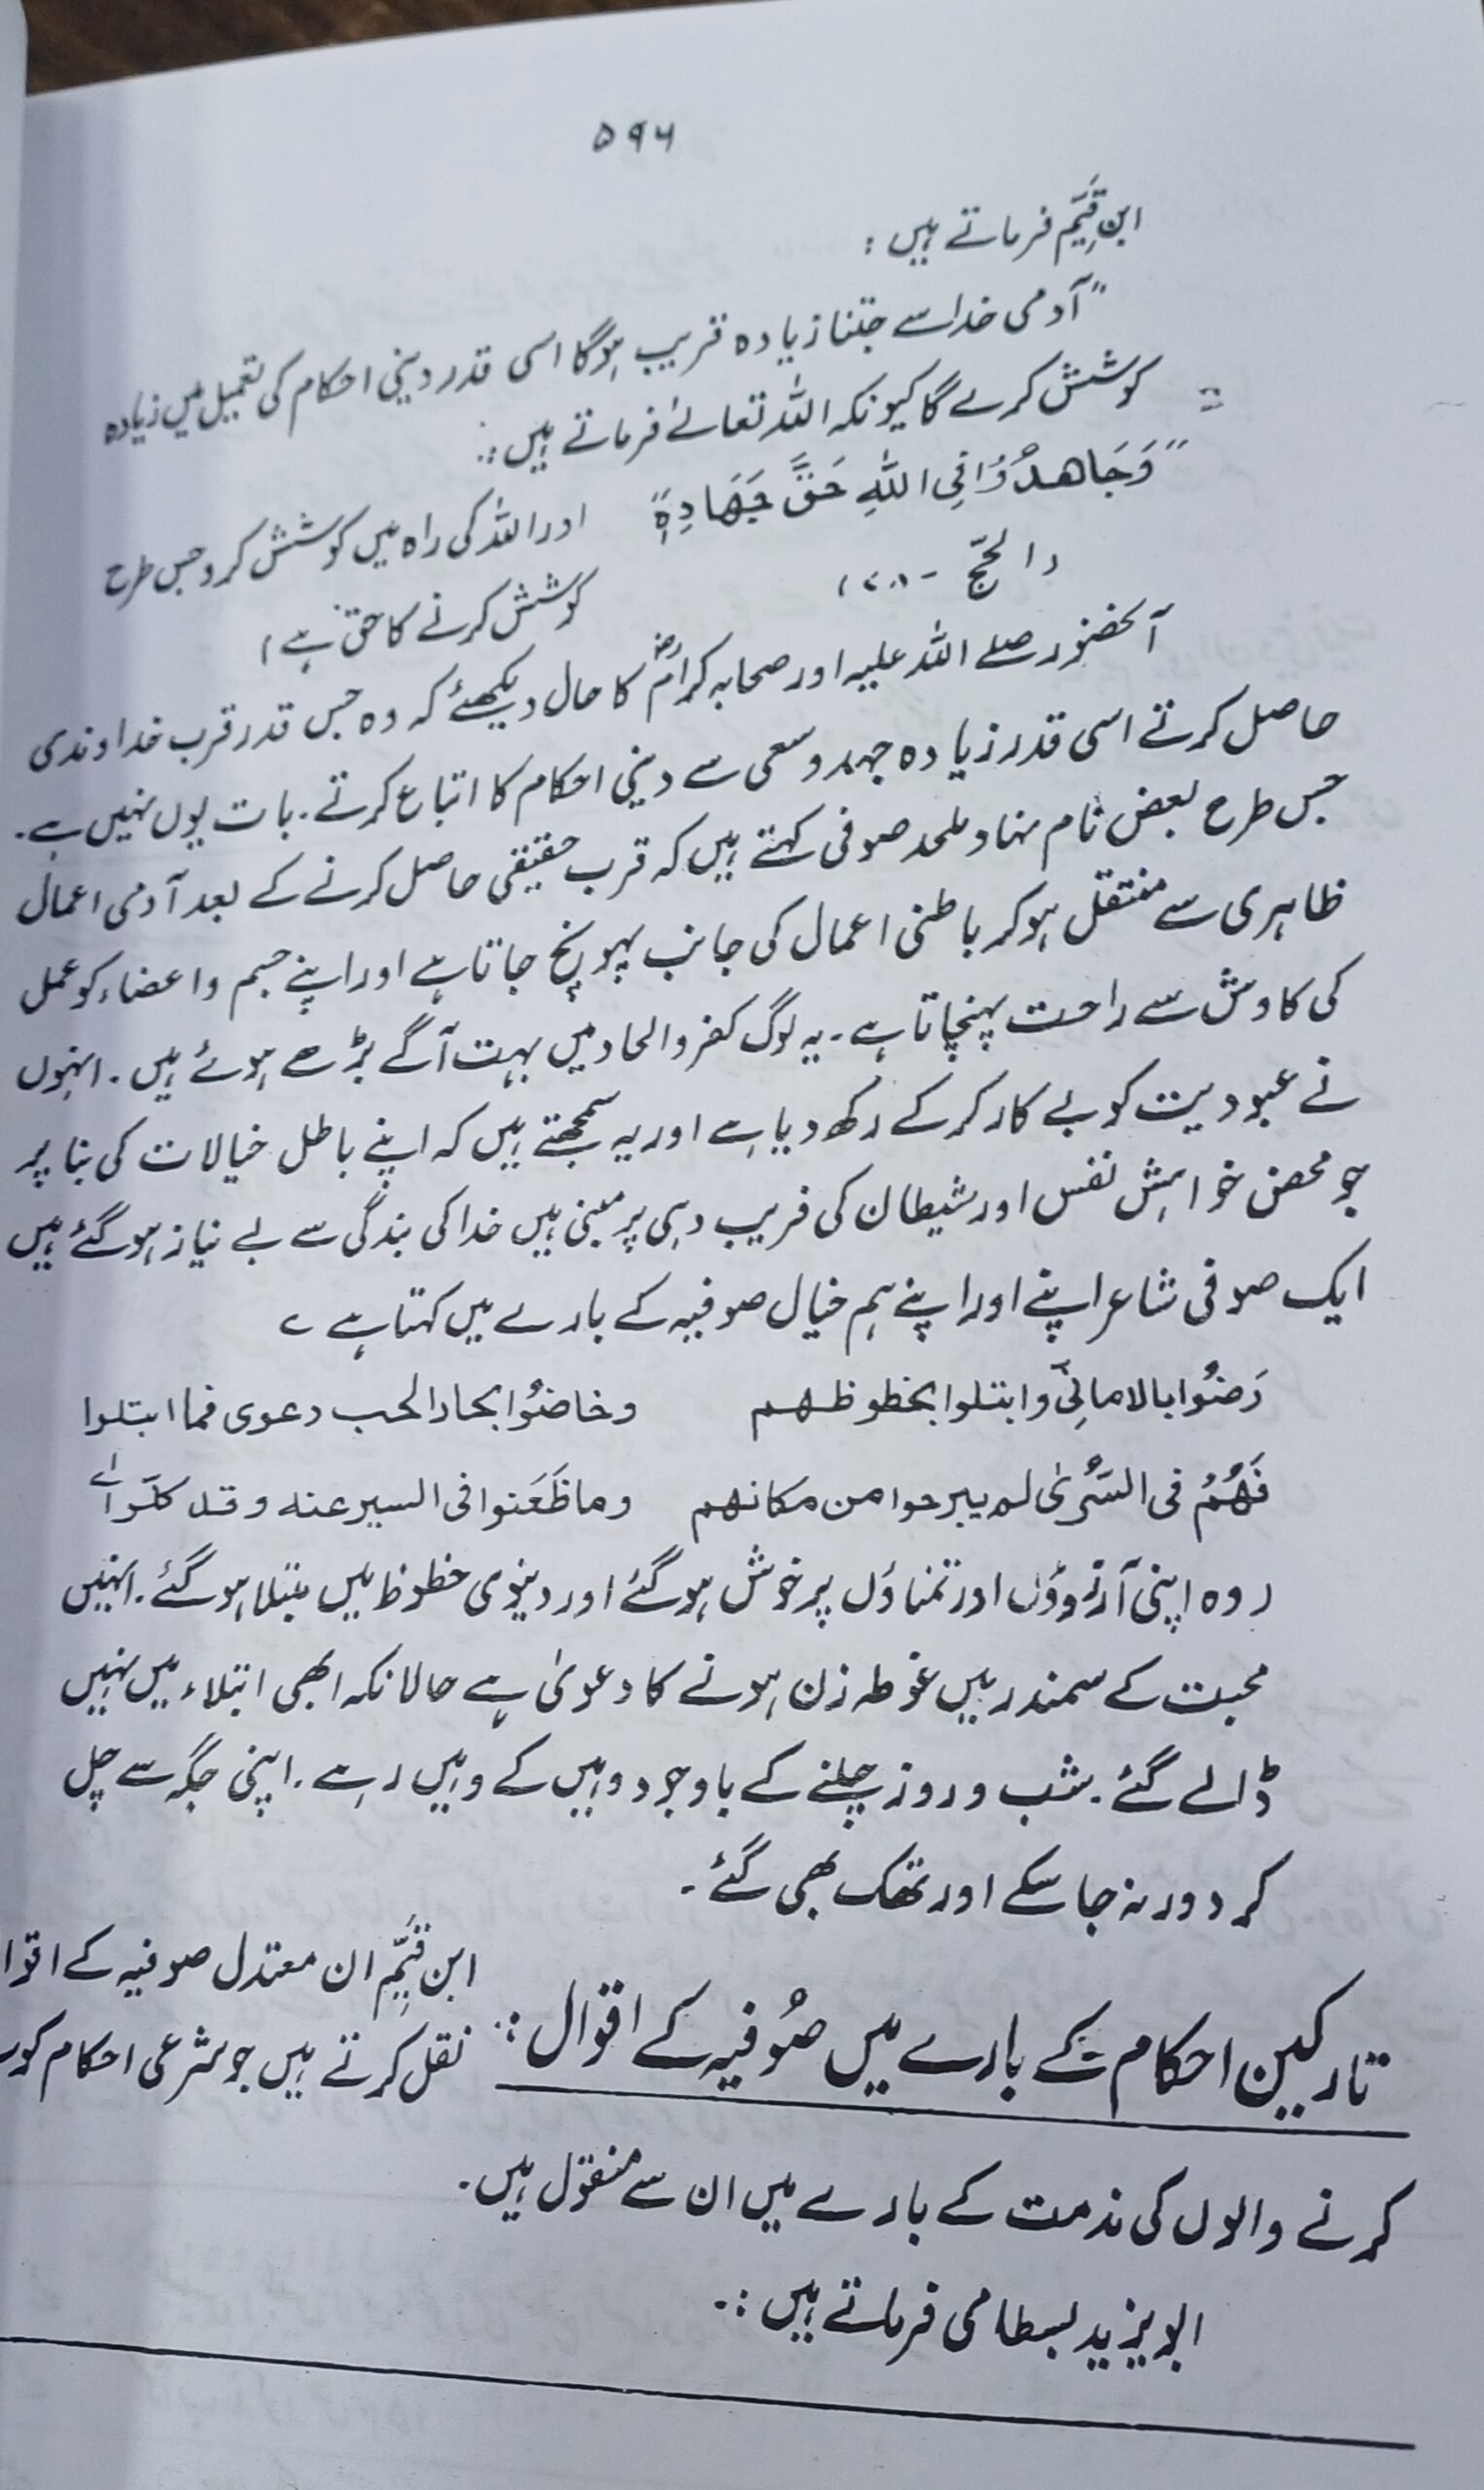 ۵۹۶
ابن قَیِّم فرماتے ہیں :
"آدمی خدا سے جتنا زیادہ قریب ہوگا اسی قدر دینی احکام کی تعمیل میں زیادہ
کوشش کرے گا کیونکہ اللہ تعالےٰ فرماتے ہیں :.
"وَجَاهِدُوْا فِی اللّٰهِ حَقَّ جِهَادِهٖ" اور اللہ کی راہ میں کوشش کرو جس طرح
(الحجّ - ۷۸) کوشش کرنے کا حق ہے)
آنحضور صلے اللہ علیہ اور صحابہ کرامؓ کا حال دیکھئے کہ وہ جس قدر قرب خداوندی
حاصل کرتے اسی قدر زیادہ جہد وسعی سے دینی احکام کا اتباع کرتے . بات یوں نہیں ہے .
جس طرح بعض نام نہاد ملحد صوفی کہتے ہیں کہ قرب حقیقی حاصل کرنے کے بعد آدمی اعمال
ظاہری سے منتقل ہو کر باطنی اعمال کی جانب پہونچ جاتا ہے اور اپنے جسم و اعضاء کو عمل
کی کاوش سے راحت پہنچاتا ہے . یہ لوگ کفر و الحاد میں بہت آگے بڑھے ہوئے ہیں . انہوں
نے عبودیت کو بے کار کر کے رکھ دیا ہے اور یہ سمجھتے ہیں کہ اپنے باطل خیالات کی بنا پر
جو محض خواہش نفس اور شیطان کی فریب دہی پر مبنی ہیں خدا کی بندگی سے بے نیاز ہو گئے ہیں
ایک صوفی شاعر اپنے اور اپنے ہم خیال صوفیہ کے بارے میں کہتا ہے ؎
رَضُوا بالامانِیّ وابتلوا بحظوظهم وخاضُوا بحار الحب دعوى فما ابتلوا
فَهُمُ فى السُّرىٰ لم يبرحوا من مكانهم وما ظَعَنوا فى السير عنه وقد كلّوا
(وہ اپنی آرزوؤں اور تمناؤں پر خوش ہو گئے اور دنیوی حظوظ میں مبتلا ہو گئے . انہیں
محبت کے سمندر میں غوطہ زن ہونے کا دعویٰ ہے حالانکہ ابھی ابتلاء میں نہیں
ڈالے گئے . شب و روز چلنے کے باوجود وہیں کے وہیں رہے . اپنی جگہ سے چل
کر دور نہ جا سکے اور تھک بھی گئے .
تارکین احکام کے بارے میں صُوفیہ کے اقوال : ابن قَیِّم ان معتدل صوفیہ کے اقوا
نقل کرتے ہیں جو شرعی احکام کو
کرنے والوں کی مذمت کے بارے میں ان سے منقول ہیں .
ابو یزید بسطامی فرماتے ہیں :.